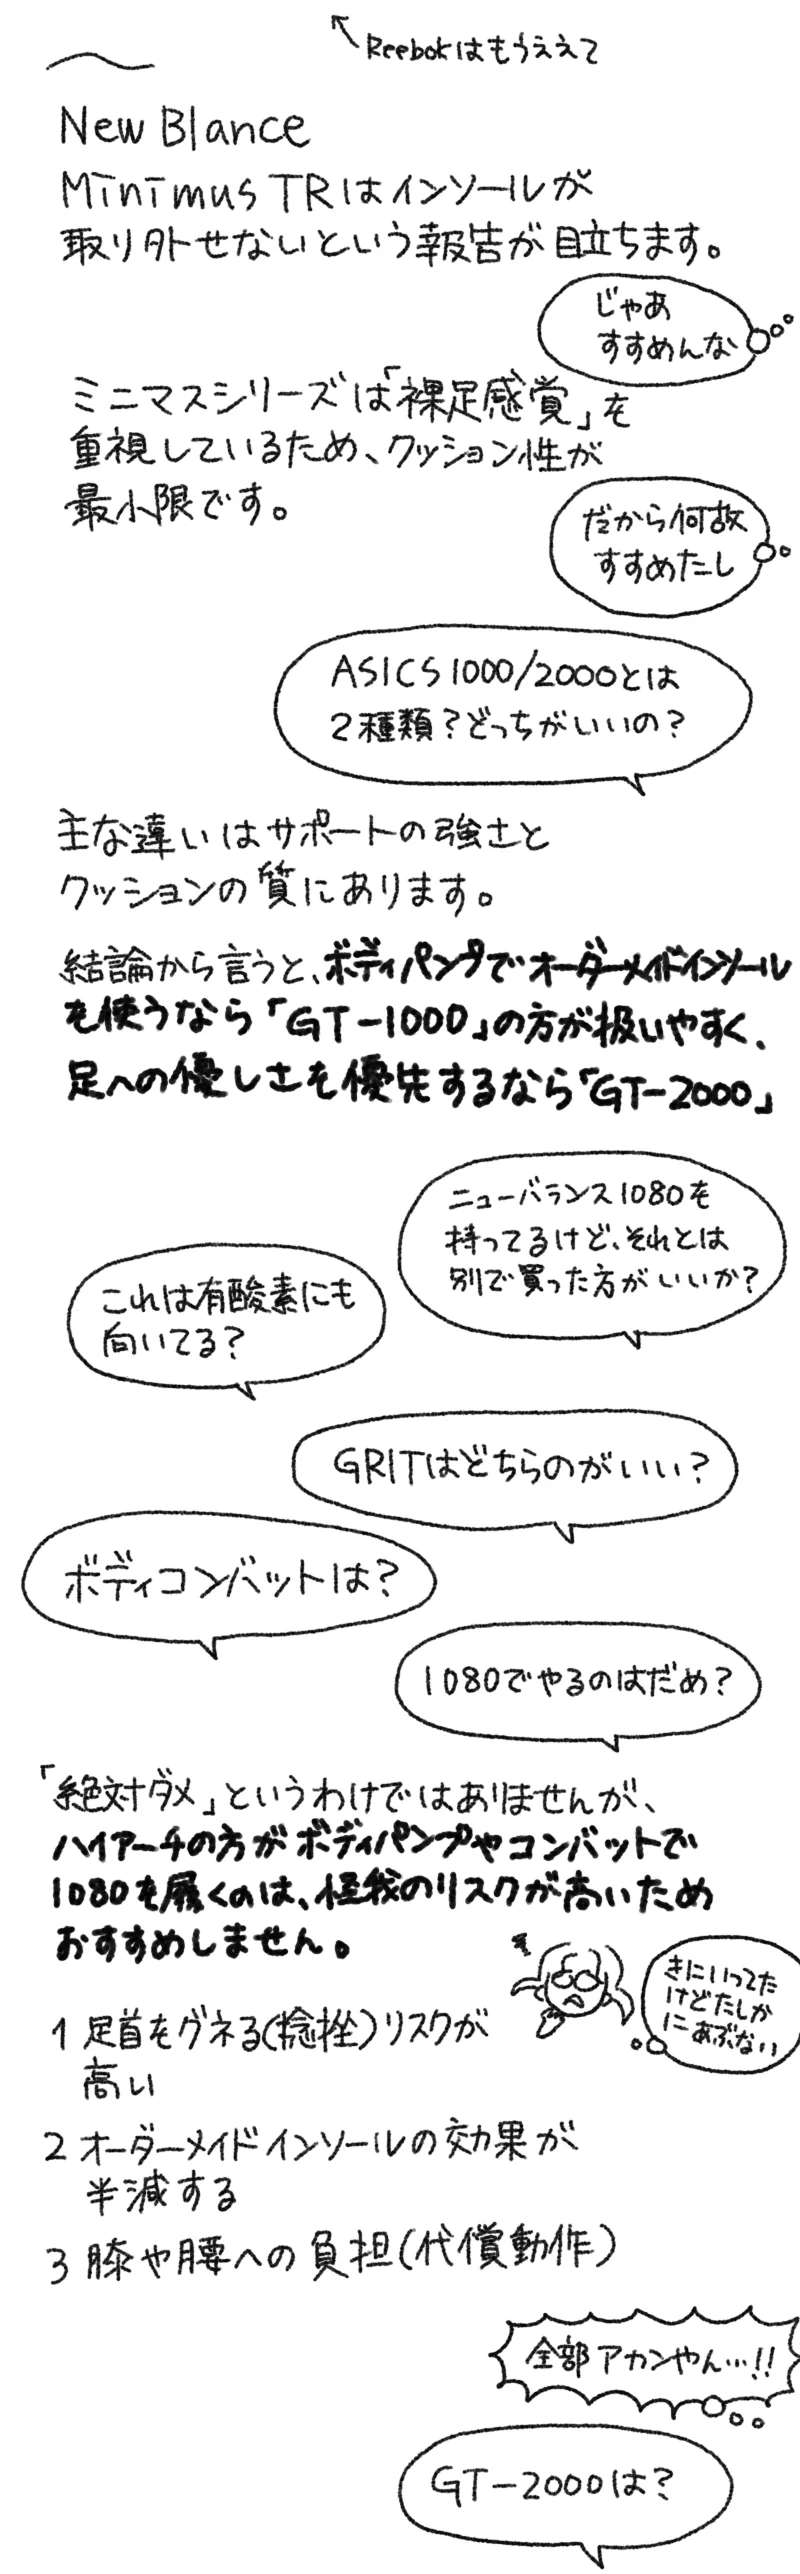 Reebokはもうええて
New Blance
Minimus TRはインソールが
取り外せないという報告が目立ちます。
じゃあ
すすめんな
ミニマスシリーズは「裸足感覚」を
重視しているため、クッション性が
最小限です。
だから何故
すすめたし
ASICS1000/2000とは
2種類?どっちがいいの?
主な違いはサポートの強さと
クッションの質にあります。
結論から言うと、ボディパンプでオーダーメイドインソール
を使うなら「GT-1000」の方が扱いやすく、
足への優しさを優先するなら「GT-2000」
ニューバランス1080を
持ってるけど、それとは
別で買った方がいいか?
これは有酸素にも
向いてる?
GRITはどちらのがいい?
ボディコンバットは?
1080でやるのはだめ?
「絶対ダメ」というわけではありませんが、
ハイアーチの方がボディパンプやコンバットで
1080を履くのは、怪我のリスクが高いため
おすすめしません。
きにいってた
けどたしか
にあぶない
1 足首をグネる(捻挫)リスクが
高い
2 オーダーメイドインソールの効果が
半減する
3 膝や腰への負担(代償動作)
全部アカンやん…!!
GT-2000は?